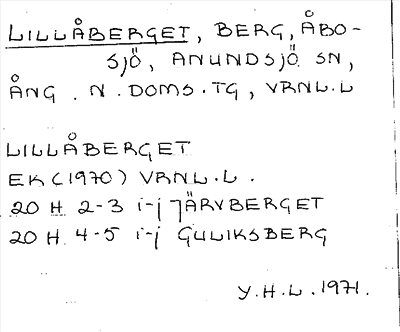 LILLÅBERGET, BERG, ÅBO-
SJÖ, ANUNDSJÖ SN,
ÅNG. N. DOMS. TG, VRNL. L
LILLÅBERGET
EK (1970) VRNL. L.
20 H 2-3 i-j JÄRVBERGET
20 H 4-5 i-j GULIKSBERG
Y. H. L. 1971.